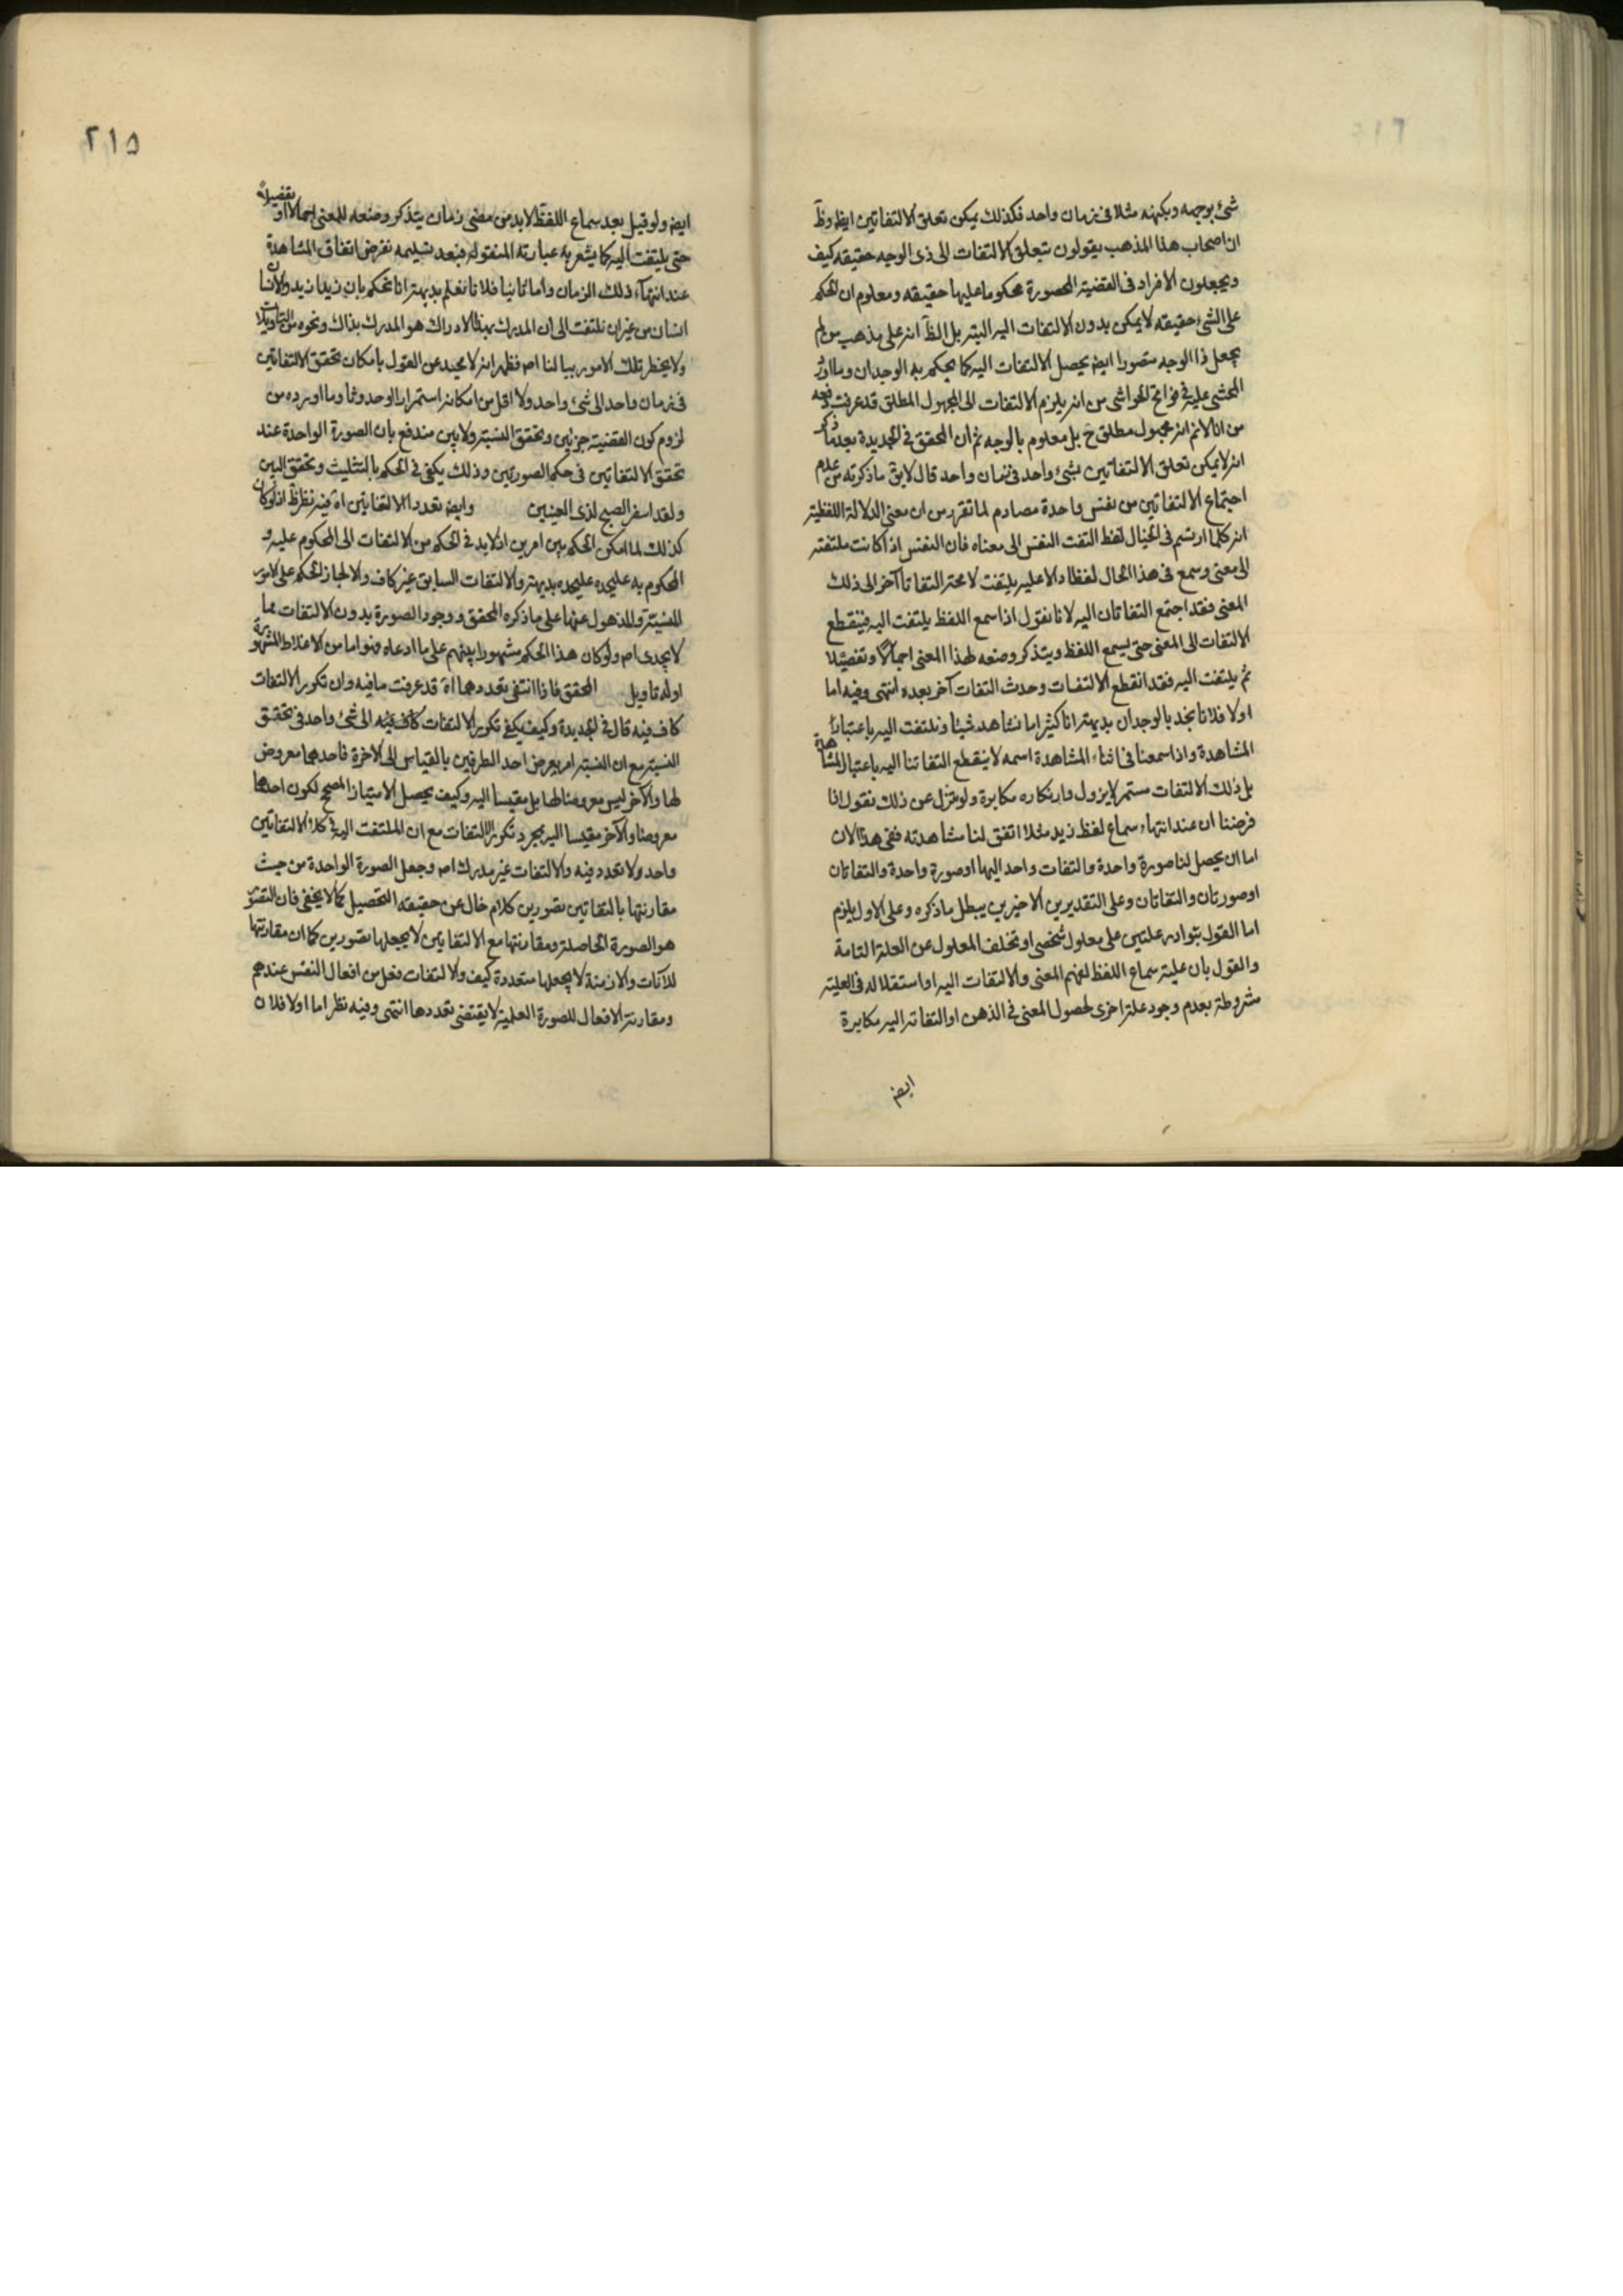 شئ بوجهه وبكنهه مثلا فى زمان واحد فكذلك يمكن تعلق الالتفاتين ايضا وظ
ان اصحاب هذا المذهب يقولون بتعلق الالتفات الى ذى الوجه حقيقه كيف
ويجعلون الافراد فى القضية المحصورة محكوما عليها حقيقه ومعلوم ان الحكم
على الشئ حقيقه لا يمكن بدون الالتفات اليه البته بل الظ انه على مذهب من لم
يجعل ذا الوجه متصورا ايضا يحصل الالتفات اليه كما يحكم به الوجدان وما اورد
المحشى عليه فى فواتح الحواشى من انه يلزم الالتفات الى المجهول المطلق قد عرفت دفعه
من انا لانم انه مجهول مطلق ح بل معلوم بالوجه ثم ان المحقق فى الجديدة بعد ما ذكر
انه لا يمكن تعلق الالتفاتين بشئ واحد فى زمان واحد قال لا يق ما ذكرته من عدم
اجتماع الالتفاتين من نفس واحدة مصادم لما تقرر من ان معنى الدلالة اللفظية
انه كلما ارتسم فى الخيال لفظ التفت النفس الى معناه فان النفس اذا كانت ملتفته
الى معنى وسمع فى هذا الحال لفظا دالا عليه يلتفت لا محة التفاتا آخر الى ذلك
المعنى فقد اجتمع التفاتان اليه لانا نقول اذا سمع اللفظ يلتفت اليه فينقطع
الالتفات الى المعنى حتى يسمع اللفظ ويتذكر وضعه لهذا المعنى اجمالا وتفصيلا
ثم يلتفت اليه فقد انقطع الالتفات وحدث التفات آخر بعده انتهى وفيه اما
اولا فلانا نجد بالوجدان بديهة انا كثيرا ما نشاهد شيئا ونلتفت اليه باعتبار
المشاهدة واذا سمعنا فى اثناء المشاهدة اسمه لا ينقطع التفاتنا اليه باعتبار المشاهدة
بل ذلك الالتفات مستمر لا يزول وانكاره مكابرة ولو تنزل عن ذلك نقول انا
فرضنا ان عند انتهاء سماع لفظ زيد مثلا اتفق لنا مشاهدته ففى هذا الان
اما ان يحصل لنا صورة واحدة والتفات واحد اليها او صورة واحدة والتفاتان
او صورتان والتفاتان وعلى التقديرين الاخيرين يبطل ما ذكره وعلى الاول يلزم
اما القول بتوارد علتين على معلول شخصى او تخلف المعلول عن العلة التامة
والقول بان علية سماع اللفظ لفهم المعنى والالتفات اليه او استقلاله فى العلية
مشروطة بعدم وجود علة اخرى لحصول المعنى فى الذهن او التفاته اليه مكابرة
ايضا
٢١٥
ايضا ولو قيل بعد سماع اللفظ لا بد من مضى زمان يتذكر وضعه للمعنى اجمالا او تفصيلا
حتى يلتفت اليه كما يشعر به عبارته المنقولة فبعد تسليمه نفرض اتفاق المشاهدة
عند انتهاء ذلك الزمان واما ثانيا فلانا نعلم بديهة انا نحكم بان زيدا زيد والانسان
انسان من غير ان نلتفت الى ان المدرك بهذا الادراك هو المدرك بذاك ونحوه من التاويلات
ولا يخطر تلك الامور ببالنا اصه فظهر انه لا محيد عن القول بامكان تحقق الالتفاتين
فى زمان واحد الى شئ واحد ولا اقل من امكانه استمرارا وحدوثا وما اورده من
لزوم كون القضية جزئين وتحقق النسبة ولا بين مندفع بان الصورة الواحدة عند
تحقق الالتفاتين فى حكم الصورتين وذلك يكفى فى الحكم بالتثليث وتحقق البين
ولقد اسفر الصبح لذى العينين وايضا تعدد الالتفاتين اه فيه نظر ظ اذ لو كان
كذلك لما امكن الحكم بين امرين اذ لا بد فى الحكم من الالتفات الى المحكوم عليه و
المحكوم به عليحده عليحده بديهة والالتفات السابق غير كاف والا لجاز الحكم على الامور
المنسية وللذهول عنها على ما ذكره المحقق ووجود الصورة بدون الالتفات مما
لا يجدى اصه ولو كان هذا الحكم مشهورا بينهم على ما ادعاه فهو اما من الاغلاط المشهورة
او له تاويل المحقق فاذا انتفى تعددهما اه قد عرفت ما فيه وان تكرر الالتفات
كاف فيه قال فى الجديدة وكيف يكفى تكرر الالتفات كاف فيه الى شئ واحد فى تحقق
النسبة مع ان النسبة امر يعرض احد الطرفين بالقياس الى الاخرة فاحدهما معروض
لها والآخر ليس معروضا لها بل مقيسا اليه وكيف يحصل الامتياز المصحح لكون احدهما
معروضا والآخر مقيسا اليه بمجرد تكرر الالتفات مع ان الملتفت اليه فى كلا الالتفاتين
واحد ولا تعدد فيه والالتفات غير مدرك اصه وجعل الصورة الواحدة من حيث
مقارنتها بالتفاتين تصورين كلام خال عن حقيقه التحصيل كما لا يخفى فان التصور
هو الصورة الحاصلة ومقارنتها مع الالتفاتين لا يجعلها تصورين كما ان مقارنتها
للآنات والازمنة لا يجعلها متعددة كيف والالتفات فعل من افعال النفس عندهم
ومقارنة الافعال للصورة العلمية لا يقتضى تعددها انتهى وفيه نظر اما اولا فلان